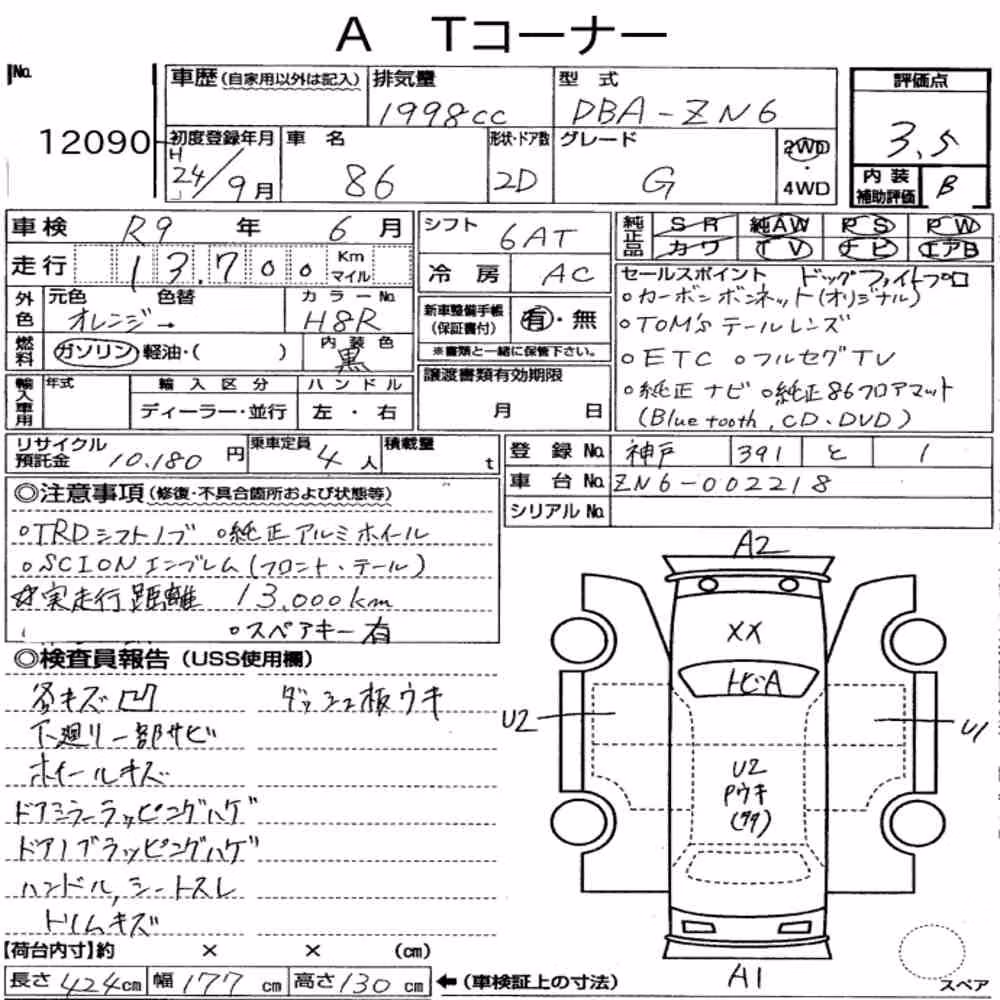 A Tコーナー
No.
12090
車歴(自家用以外は記入)
排気量
1998cc
型 式
DBA-ZN6
評価点
3.5
初度登録年月
H
24/9月
車 名
86
形状・ドア数
2D
グレード
G
2WD
・
4WD
内 装
補助評価
B
車検 R9 年 6 月
シフト
6AT
純正品
SR 純AW PS PW
カワ TV ナビ エアB
走行 13,700
Km
マイル
冷 房 AC
セールスポイント ドッグファイトプロ
○カーボンボンネット(オリジナル)
○TOM'sテールレンズ
○ETC ○フルセグTV
○純正ナビ ○純正86フロアマット
(Bluetooth, CD、DVD)
外色
元色 色替
オレンジ→
カラーNo.
H8R
新車整備手帳
(保証書付)
有・無
※書類と一緒に保管下さい。
燃料
ガソリン・軽油・( )
内 装 色
黒
輸入車用
年式
輸 入 区 分
ディーラー・並行
ハ ン ド ル
左 ・ 右
譲渡書類有効期限
月 日
リサイクル
預託金
10.180 円
乗車定員
4 人
積載量
t
登 録 No. 神戸 391 と 1
車 台 No. ZN6-002218
シリアルNo.
◎注意事項(修復・不具合箇所および状態等)
○TRDシフトノブ ○純正アルミホイール
○SCIONエンブレム(フロント、テール)
☆実走行距離 13,000km
○スペアキー有
◎検査員報告(USS使用欄)
各キズ凹 ダッシュ板ウキ
下廻り一部サビ
ホイールキズ
ドアミラーラッピングハゲ
ドアノブラッピングハゲ
ハンドル,シートスレ
トリムキズ
A2
XX
トビA
U2
U1
U2
Pウキ
A1
スペア
【荷台内寸】約 × × (cm)
長さ 424cm 幅 177cm 高さ 130cm ←(車検証上の寸法)